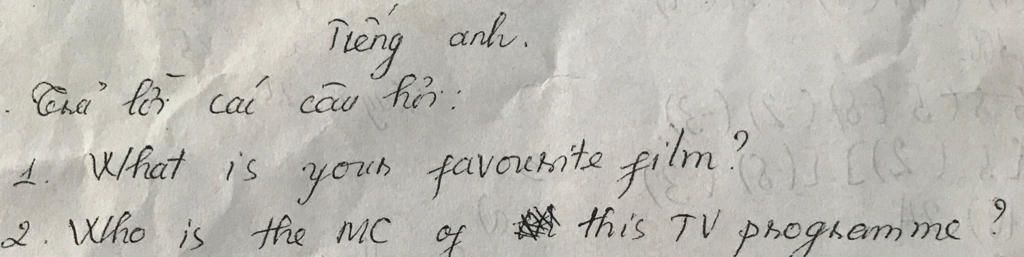 Tiếng anh.
. Trả lời caí câu hỏi:
1. What is your favourite film?
2. Who is the MC of this TV programme?